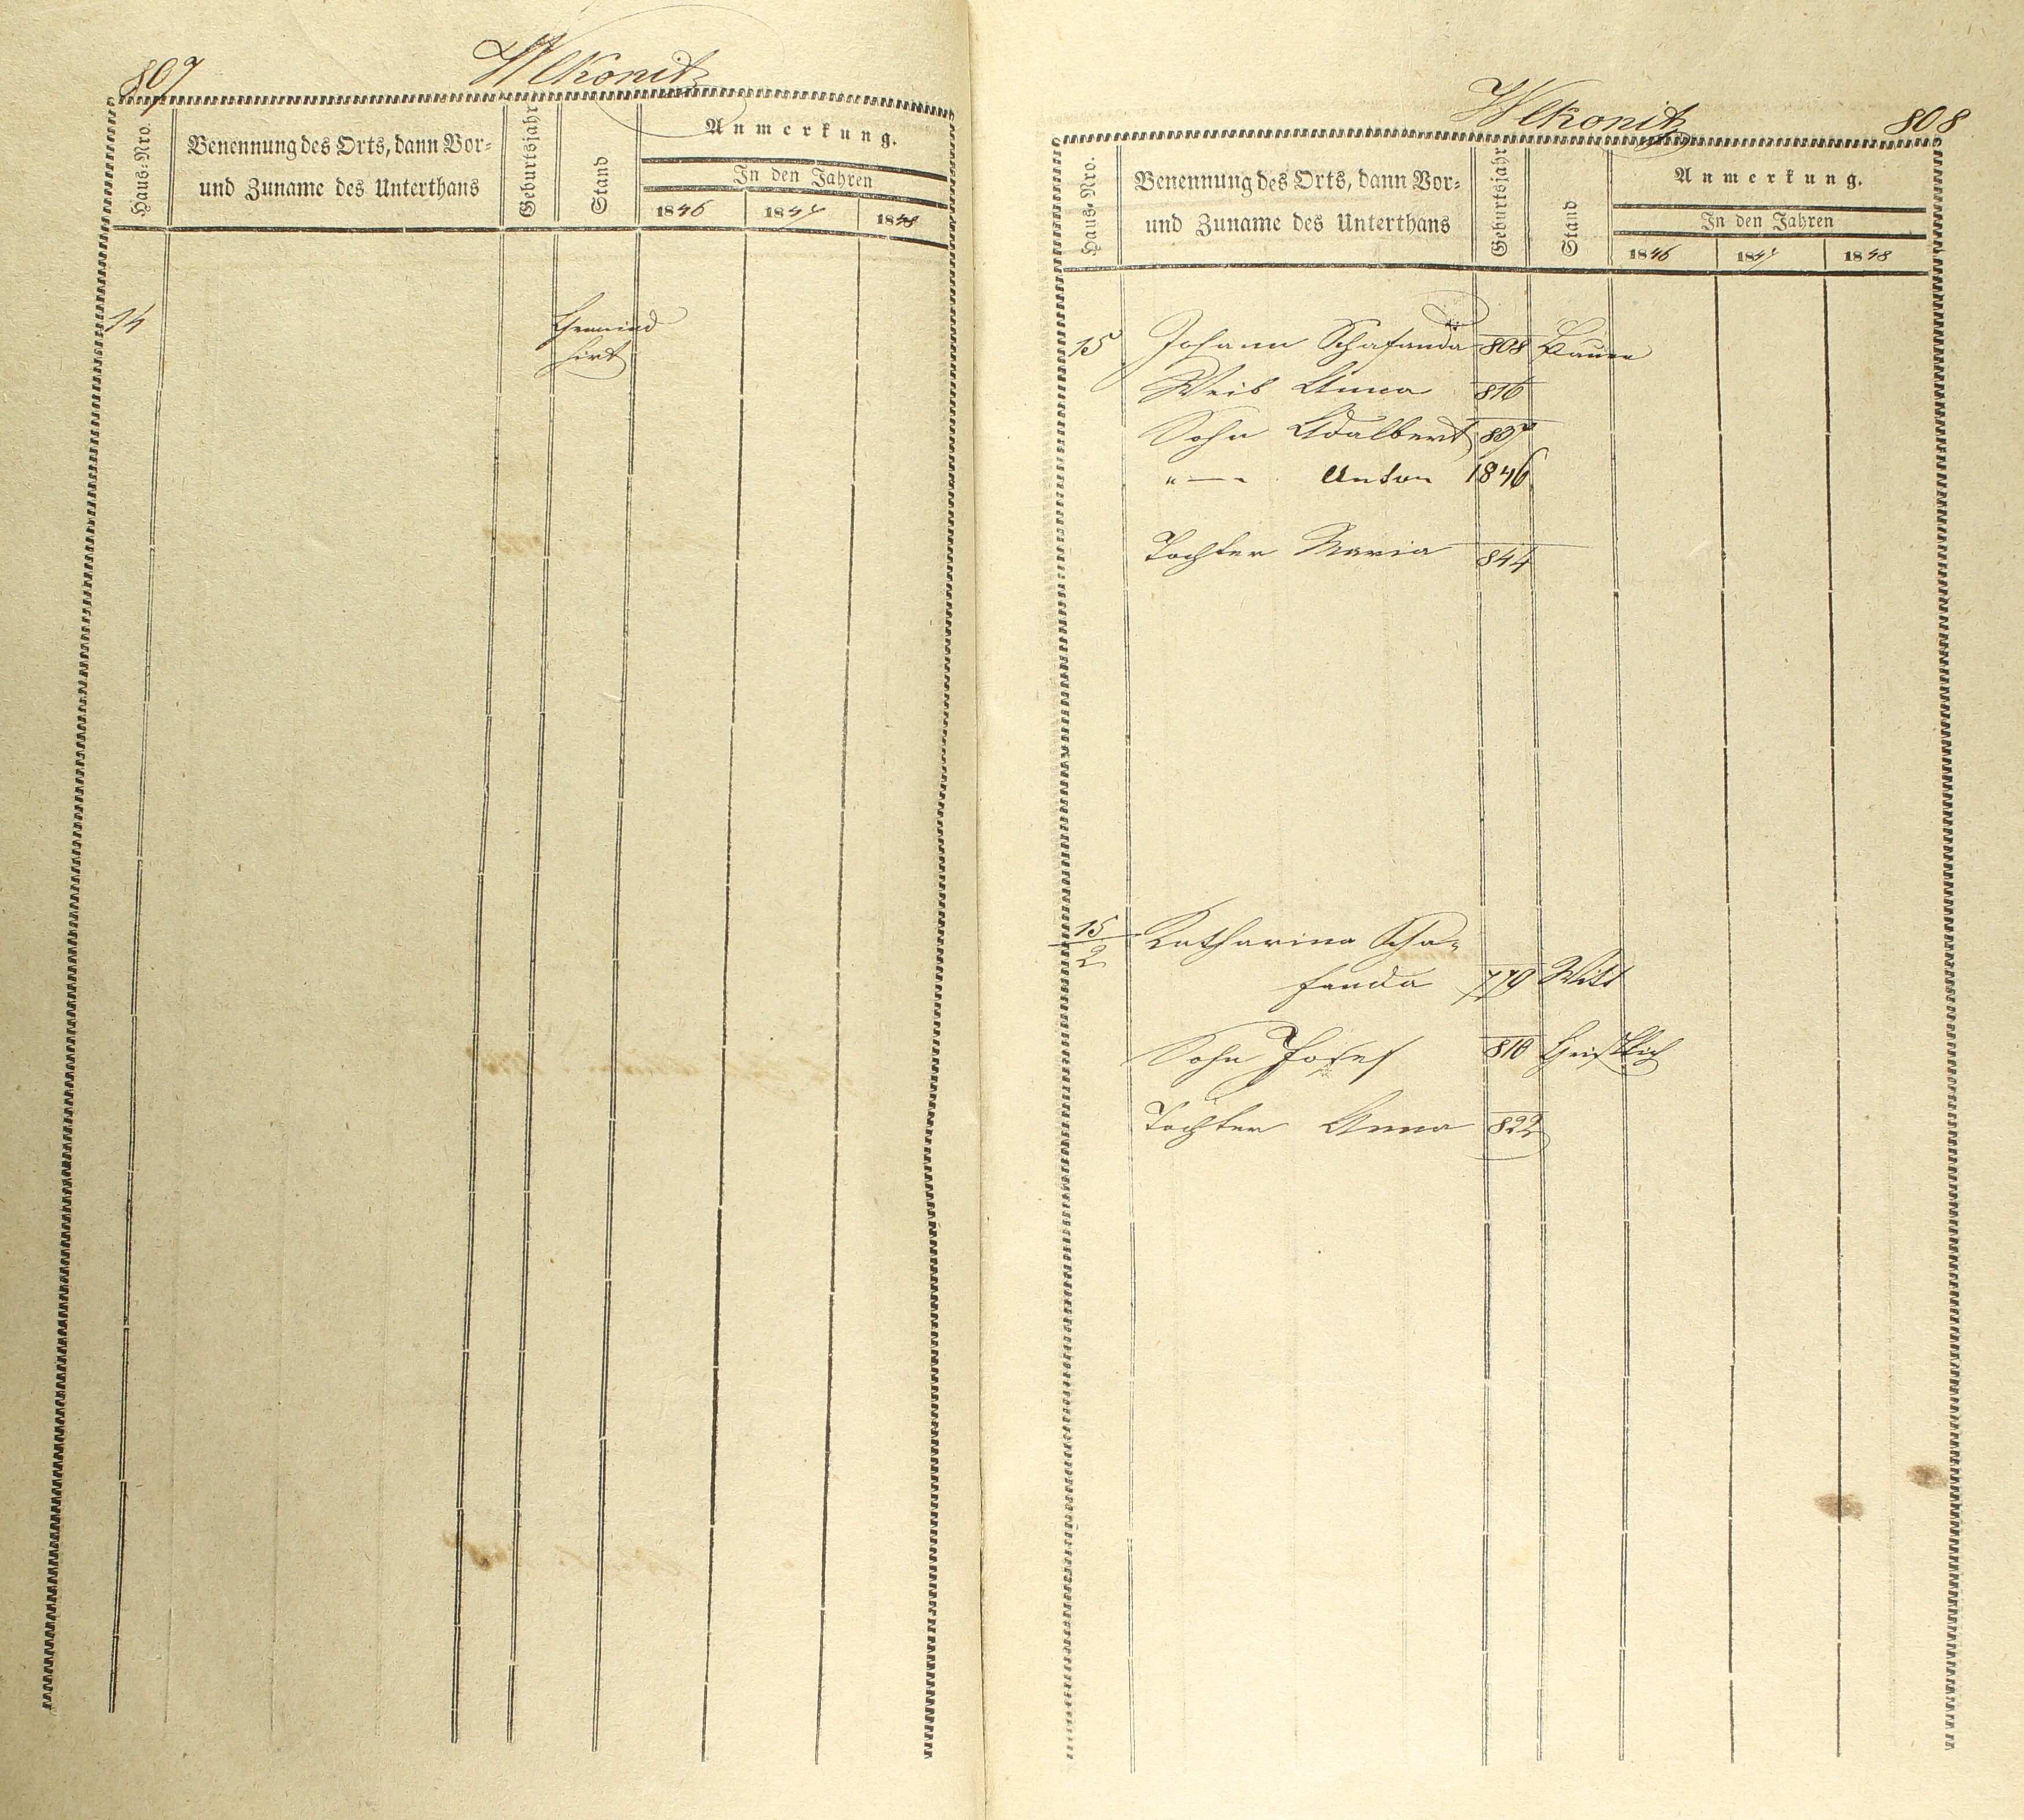 807
Wlkonitz
Haus-Nro.
Benennung des Orts, dann Vor-
und Zuname des Unterthans
Geburtsjahr
Stand
Anmerkung.
In den Jahren
1846 1847 1848
14 Gemeind
hirt
Wlkonitz
808
Haus-Nro.
Benennung des Orts, dann Vor-
und Zuname des Unterthans
Geburtsjahr
Stand
Anmerkung.
In den Jahren
1846 1847 1848
15 Johann Schafanda 808 Bauer
Weib Anna 816
Sohn Adalbert
"—" Anton 1846
Tochter Maria 844
15/2 Katharina Scha=
fanda 779 Witt
Sohn Josef 810 Geistlich
Tochter Anna 822